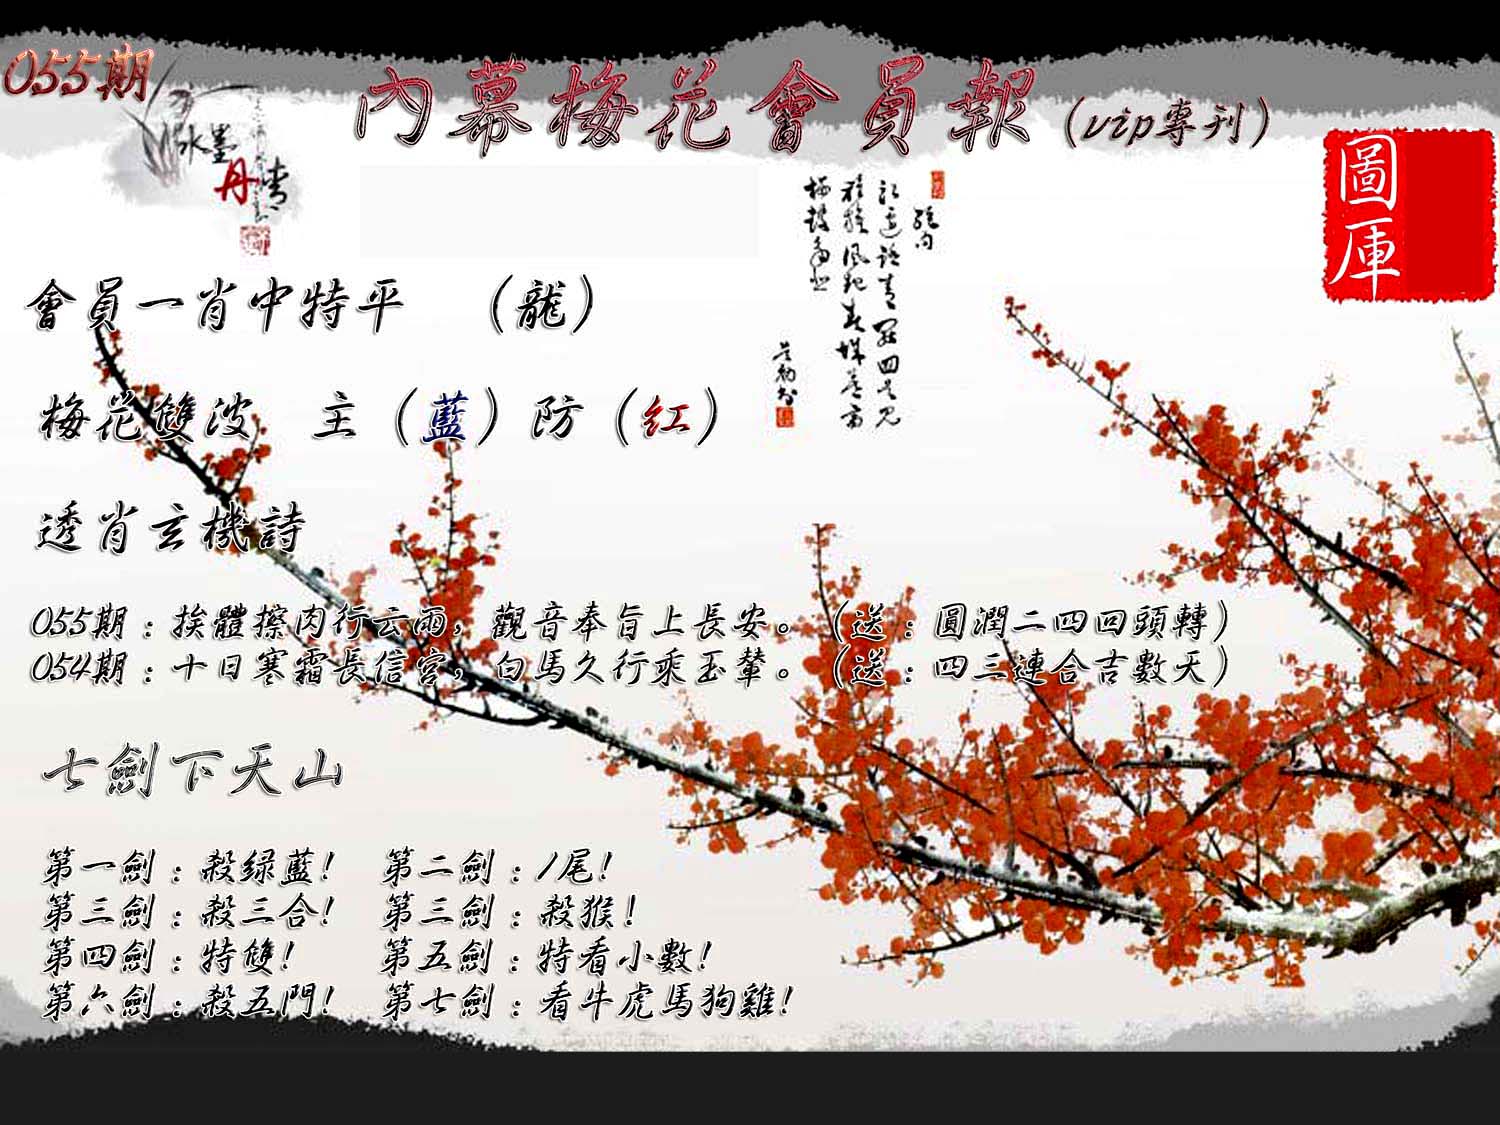 055期
內幕梅花會員報（vip專刊）
水墨
丹青
圖庫
會員一肖中特平 （龍）
梅花雙波 主（藍）防（紅）
透肖玄機詩
055期：挨體擦肉行云雨，觀音奉旨上長安。（送：圓潤二四回頭轉）
054期：十日寒霜長信宮，白馬久行乘玉輦。（送：四三連合吉數天）
七劍下天山
第一劍：殺绿藍！ 第二劍：1尾！
第三劍：殺三合！ 第三劍：殺猴！
第四劍：特雙！ 第五劍：特看小數！
第六劍：殺五門！ 第七劍：看牛虎馬狗雞！